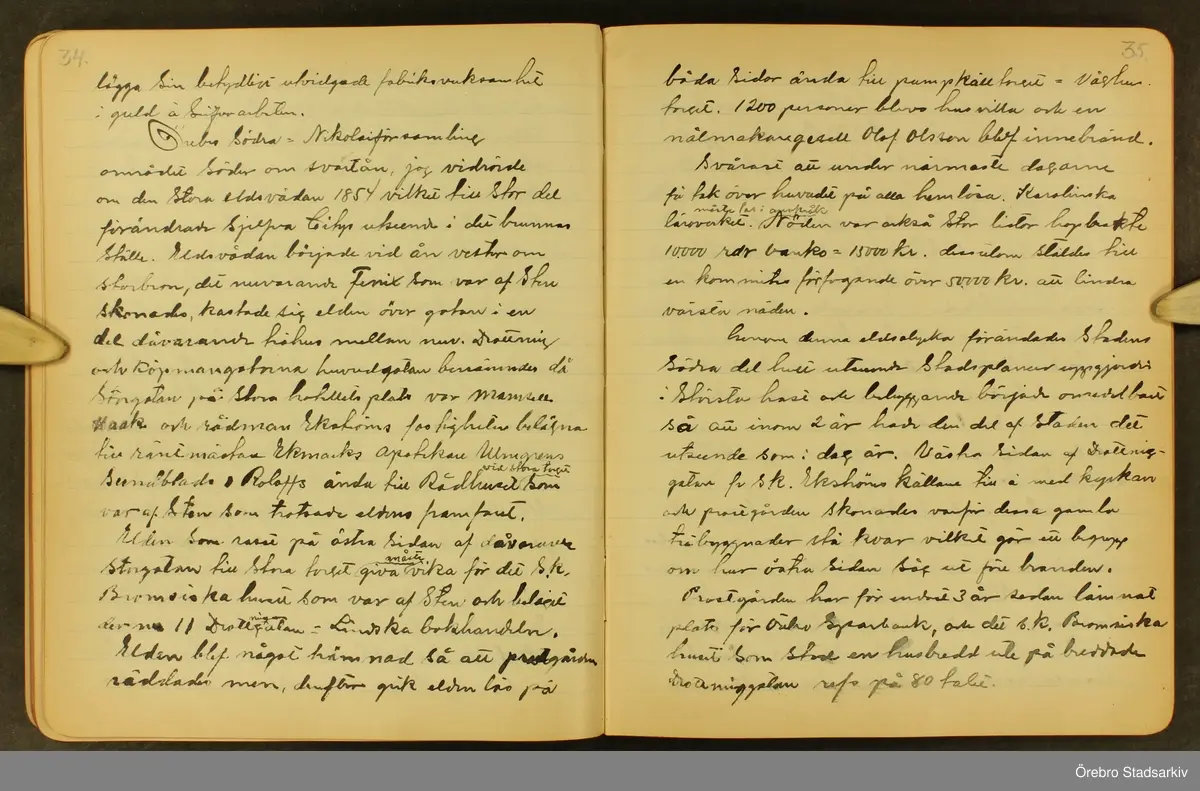 34.
lägga sin betydligt utvidgade fabriksverksamhet
i guld å silfverarbeten.
Örebro Södra = Nikolaiförsamling
området Söder om svartån, jag vidrörde
om den stora eldsvådan 1854 vilket till stor del
förändrade sjelfva Citys utseende i det brunnas
ställe. Eldsvådan började vid ån vester om
storbron, det nuvarande Fenix som var af Sten
skonades, kastade sig elden över gatan i en
del dåvarande trähus mellan nuv. Drottning
och Köpmangatorna huvudgatan benämndes då
Storgatan på Stora hotellets plats var Mamsell
Haak och rådman Ekströms fastigheter belägna
till räntmästar Ekmarks apotikare Ulmgrens
vid stora torget
Roloffs ända till Rådhuset som
var af Sten som trotsade eldens framfart.
Elden som rasat på östra sidan af dåvarande
måste
Storgatan till Stora torget giva vika för det s.k.
Bromsiska huset som var af Sten och beläget
der nu 11 Drottninggatan = Lindska bokhandeln.
Elden blef något hämnad så att prostgården
räddades men, derefter gick elden lös på
35
båda sidor ända till pumpkälletorget = Våghus-
torget. 1200 personer blevo husvilla och en
nålmakaregesell Olof Olsson blef innebränd.
Svårast att under närmaste dagarne
få tak över huvudet på alla hemlösa. Karolinska
måste tas i anspråk
läroverket. Nöden var också stor listor hopbrakte
10.000 rdr banko = 15000 kr. dessutom ställdes till
en kommittés förfogande över 50,000 kr. att lindra
värsta nöden.
Genom denna eldsolycka förändades stadens
Södra del helt utseende Stadsplaner uppgjordes
i största hast och bebyggande började omedelbart
så att inom 2 år hade den del af staden det
utseende som i dag är. Västra sidan af Drottning-
gatan fr s.k. Ekströms källare till å med kyrkan
och prostgården skonades varför dessa gamla
träbyggnader stå kvar vilket gör ett begrepp
om hur östra sidan såg ut före branden.
Prostgården har för endast 3 år sedan lämnat
plats för Örebro Sparbank, och det s.k. Bromsiska
huset som stod en husbredd ute på breddade
Drottninggatan refs på 80 talet.
Örebro Stadsarkiv